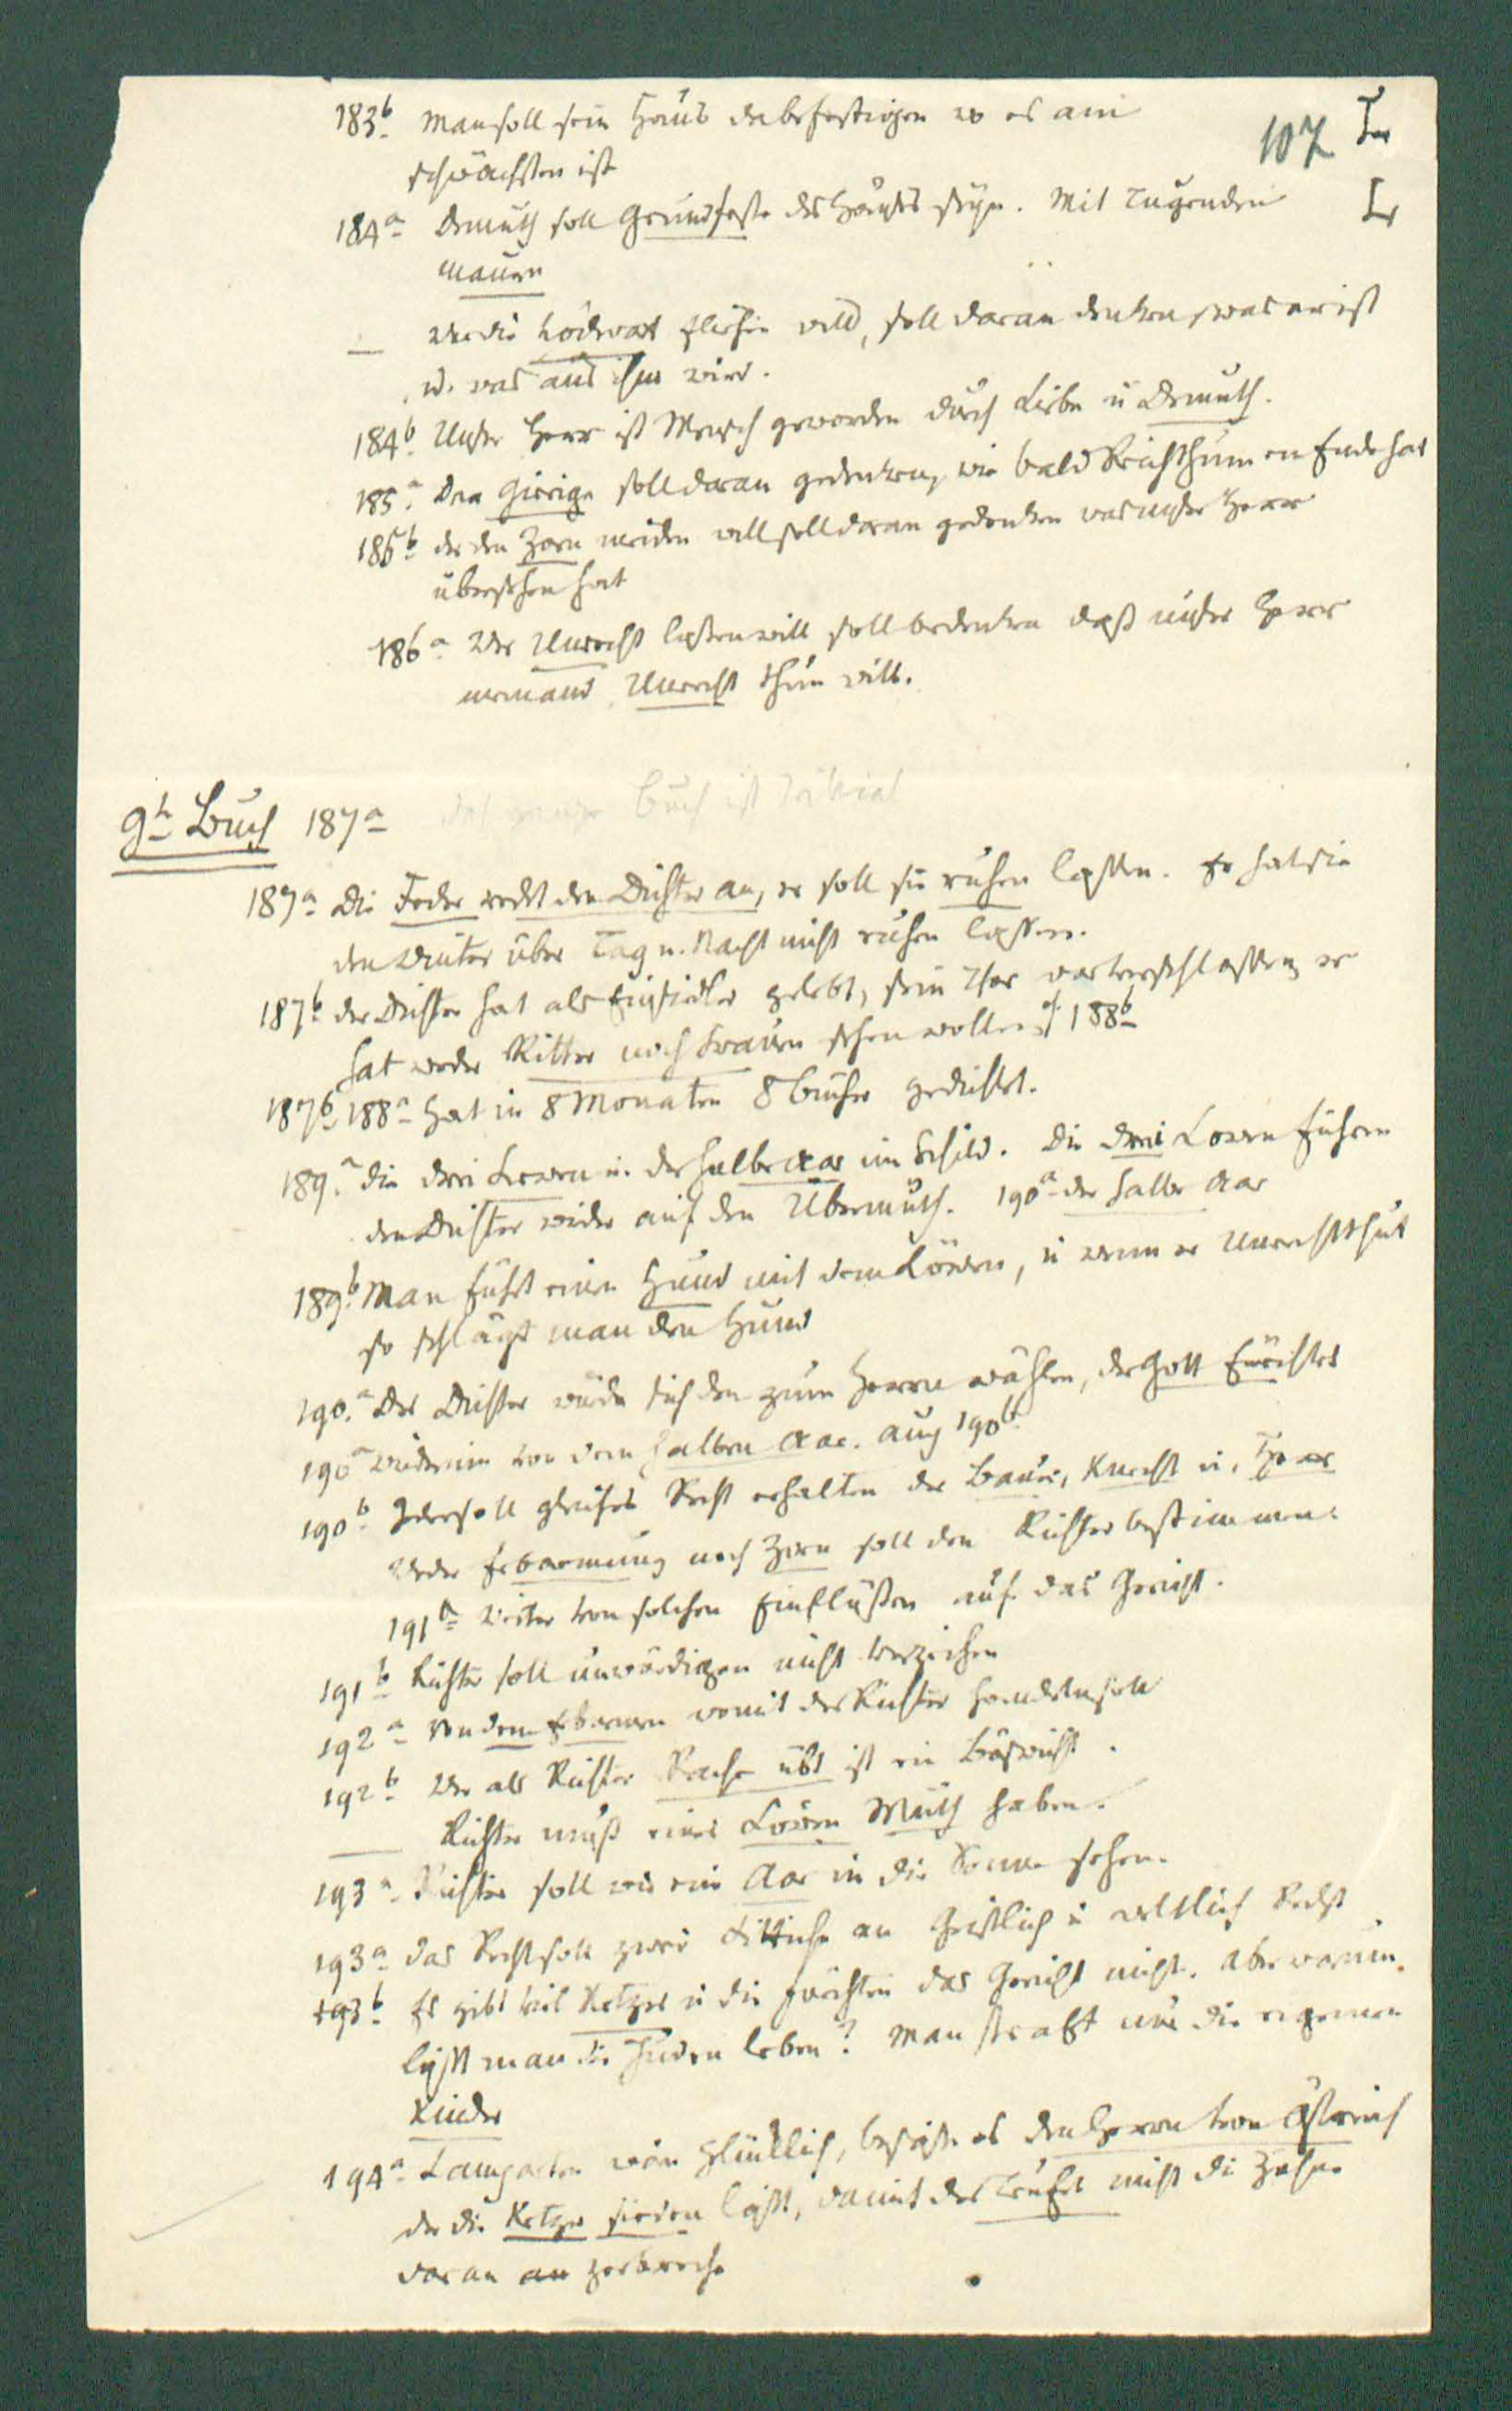 183b Man soll sein Haus da befestigen wo es am
107
schwächsten ist
184a Demuth soll Grundfeste des Hauses seyn. Mit Tugenden
mauern
— Wer die hochvart fliehen will, soll daran denken, was er ist
u. was aus ihm wird.
184b Unser Herr ist Mensch geworden durch Liebe u Demuth.
185a Der Gierige soll daran gedenken, wie bald Reichthum en Ende hat
185b der den Zorn meiden will soll daran gedenken was unser Herr
übersehen hat
186a Wer Unrecht lassen will soll bedenken daß unser Herr
niemand Unrecht thun will.
9ts Buch 187a das ganze Buch ist
187a Die Feder redet den Dichter an, er soll sie ruhen lassen. Er hat sie
den Winter über Tag u. Nacht nicht ruhen lassen.
187b der Dichter hat als Einsiedler gelebt, sein Thor war verschlossen, er
hat weder Ritter noch Frauen sehen wollen cf 188b
187b 188a hat in 8 Monaten 8 Bücher gedichtet.
189a die drei Lewen u. der halbe Aar im Schild. Die drei Lewen führen
den Dichter wieder auf den Übermuth. 190a der halbe Aar
189b Man führt einen Hund mit dem Löwen, u wenn er Unrecht thut
so schlägt man den Hund
190a Der Dichter würde sich den zum Herrn wählen, der Gott fürchtet
190a wiederum von dem halben Aar. auch 190b
190b Jeder soll gleiches Recht erhalten der Bauer, Knecht u. Herr
Weder Erbarmung noch Zorn soll den Richter bestimmen.
191a Weiter von solchen Einflüßen auf das Gericht.
191b Richter soll unwürdigen nicht verzeihen
192a Von dem Erbarmen womit der Richter handeln soll
192b Wer als Richter Rache übt ist ein Bösewicht.
— Richter muß eines Löwen Muth haben.
193a Richter soll wie ein Aar in die Sonne sehen.
193a das Recht soll zwei Fittiche an Geistlich u weltlich Recht
193b Es gibt viel Ketzer u die fürchten das Gericht nicht. Aber warum
läßt man die Juden leben? Man straft nur die eigenen
Kinder
194a Lamparten wäre glücklich, besäße es den Herrn von Östreich
der die Ketzer sieden läßt, damit der Teufel nicht die Zähne
daran an zerbreche